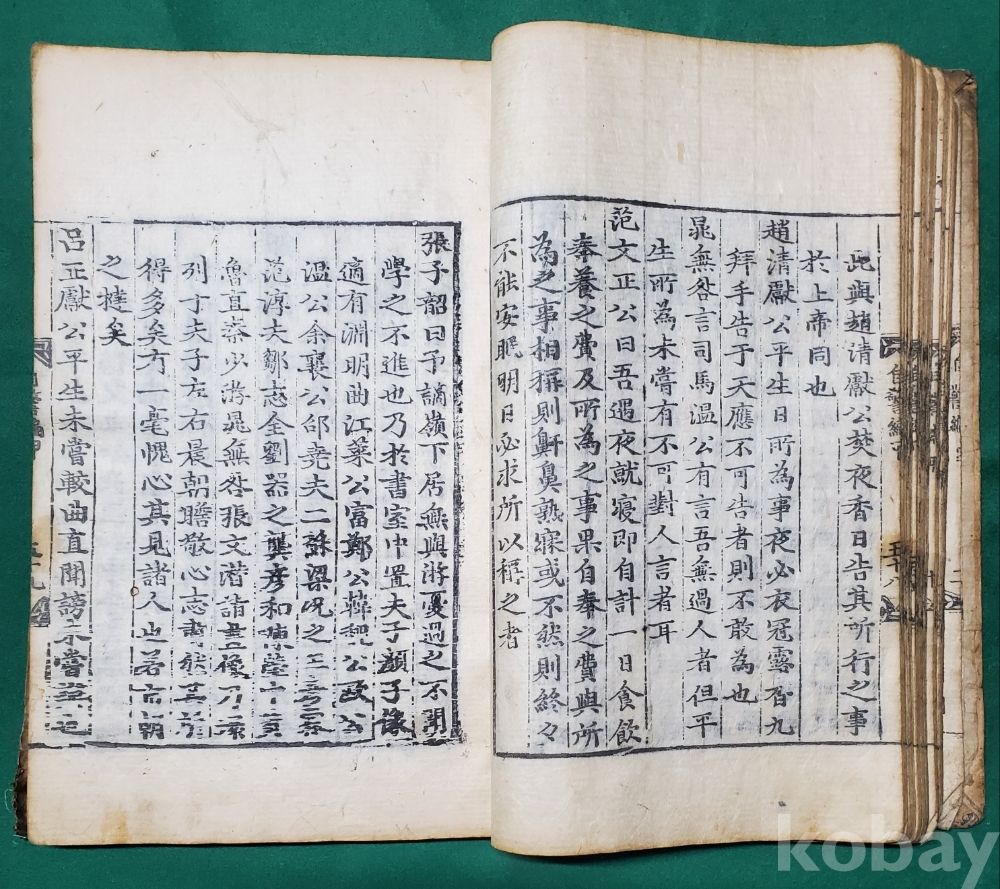 此與趙清獻公焚夜香日告其所行之事
於上帝同也
趙清獻公平生日所為事夜必衣冠露香九
拜手告于天應不可告者則不敢為也
晁無咎言司馬溫公有言吾無過人者但平
生所為未嘗有不可對人言者耳
范文正公曰吾遇夜就寢即自計一日食飲
奉養之費及所為之事果自奉之費與所
為之事相稱則鼾鼻熟寐或不然則終々
不能安眠明日必求所以稱之者
張子韶曰予謫嶺下居無與游憂過之不聞
學之不進也乃於書室中置夫子顏子像
適有淵明曲江萊公富鄭公韓魏公歐公
溫公余襄公邵堯夫二蘇梁况之王
范淳夫鄒志全劉器之龔彥和陳瑩中黃
魯直秦少游晁無咎張文潛諸畫像乃
列于夫子左右晨朝瞻敬心志肅然其
得多矣方一毫愧心其見諸人也若市朝
之撻矣
呂正獻公平生未嘗較曲直聞謗未嘗
自警編
五十八
kobay